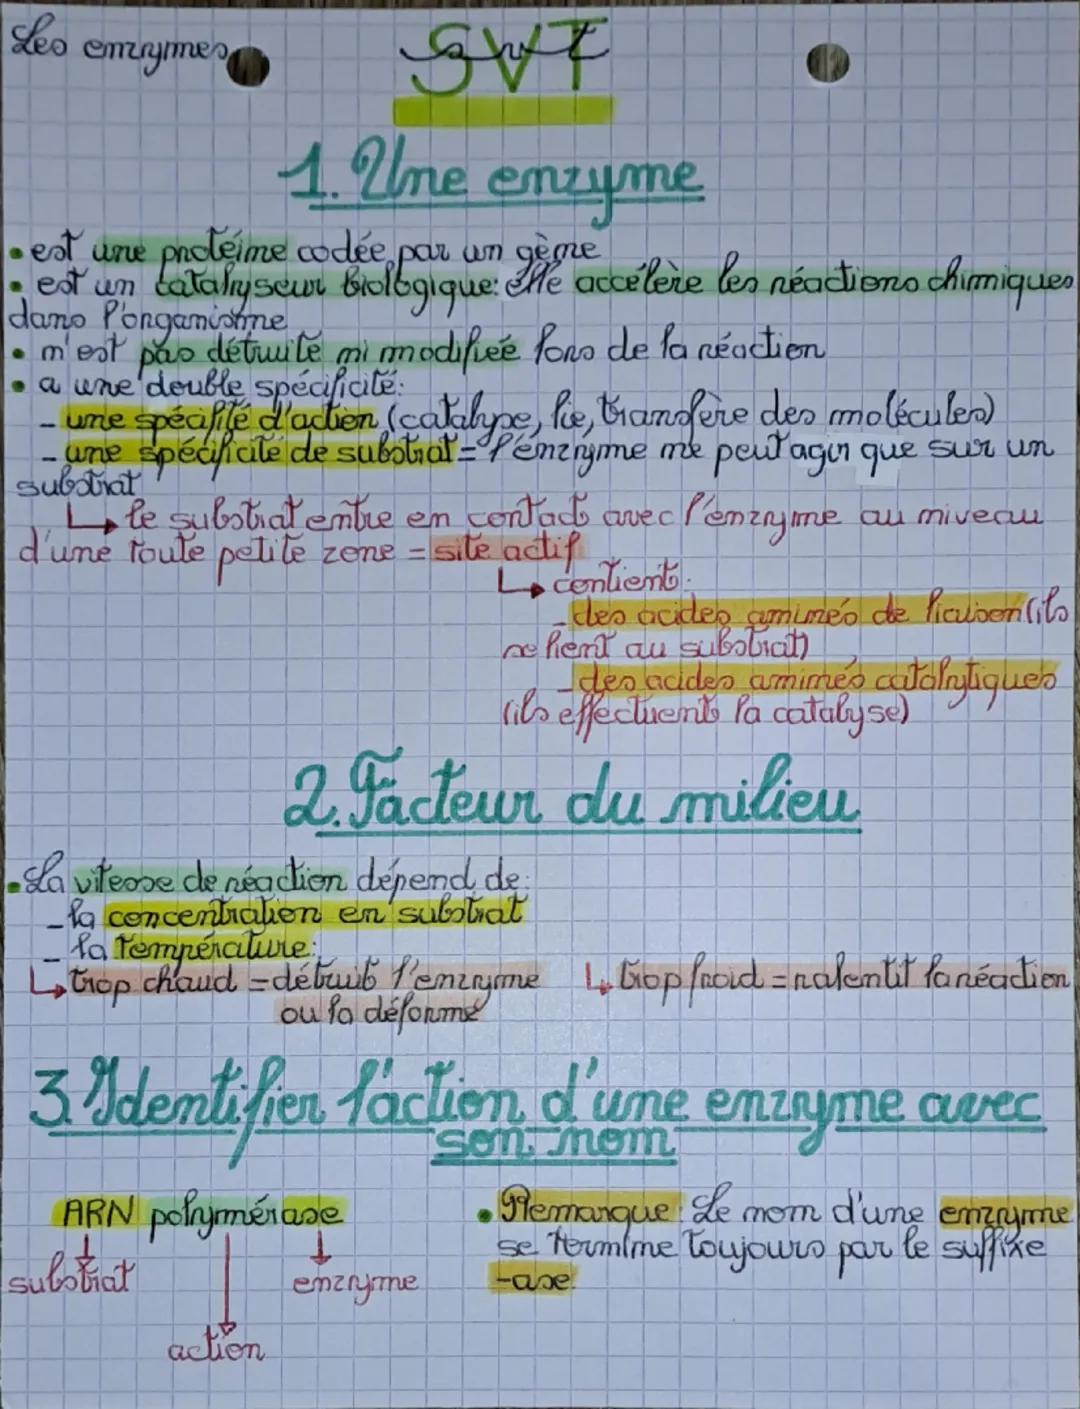 Les enzymes
SVT
1. Une enzyme
• est une protéine codée par un gène
• est un catalyseur biologique: elle accélère les réactions chimiques
dans l'organisme
• n'est pas détruite ni modifiée lors de la réaction
• a une double spécificité:
- une spécifité d'action (catalype, lie, transfère des molécules)
- une spécificité de substrat = l'enzyme ne peut agir que sur un
substrat
↳ le substrat entre en contact avec l'enzyme au niveau
d'une toute petite zone = site actif
↳ contient:
- des acides aminés de liaison (ils
se lient au substrat)
- des acides aminés catalytiques
(ils effectuent la catalyse)
2. Facteur du milieu
• La vitesse de réaction dépend de:
- la concentration en substrat
- la température:
↳ trop chaud = détruit l'enzyme ↳ trop froid = ralentit la réaction
ou la déforme
3. Identifier l'action d'une enzyme avec
son nom
ARN polymérase • Remarque: Le nom d'une enzyme
se termine toujours par le suffixe
substrat enzyme -ase.
action